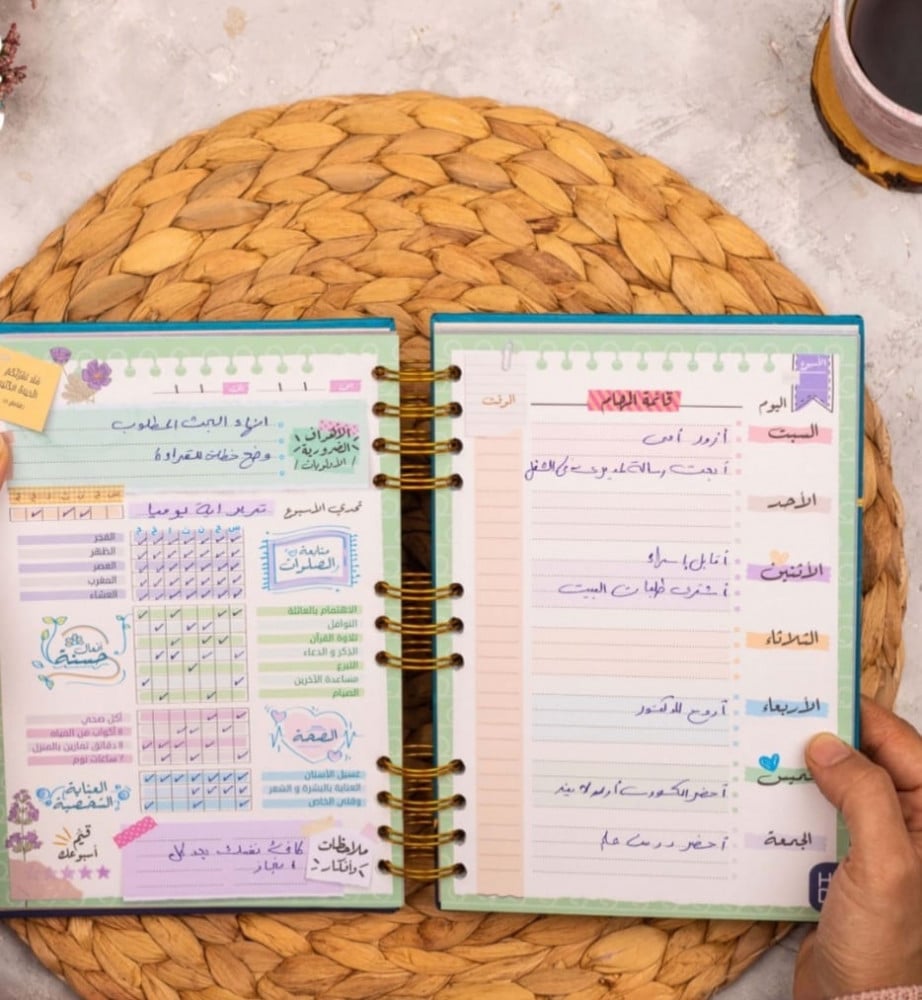 الأسبوع
اليوم
قائمة المهام
الوقت
السبت
أزور أمي
أبعث رسالة لمديري في الشغل
الأحد
الأثنين
أقابل إسراء
أشتري طلبات البيت
الثلاثاء
الأربعاء
أروح للدكتور
الجمعة
أحضر درس علم
من
إلى
الأهداف
الضرورية
الأولويات
انهاء البحث المطلوب
وضع خطة للقراءة
تحدي الأسبوع
تدبر اية يوميا
س ح ن ث ر خ ج
متابعة
الصلوات
الفجر
الظهر
العصر
المغرب
العشاء
أفعال
حسنة
الاهتمام بالعائلة
النوافل
تلاوة القرآن
الذكر و الدعاء
التبرع
مساعدة الآخرين
الصيام
الصحة
أكل صحي
٨ أكواب من المياه
١٠ دقائق تمارين بالمنزل
٧ ساعات نوم
العناية
الشخصية
غسيل الأسنان
العناية بالبشرة و الشعر
وقتي الخاص
ملاحظات
وأفكار
كافئ نفسك بعد كل
انجاز
قيّم
أسبوعك